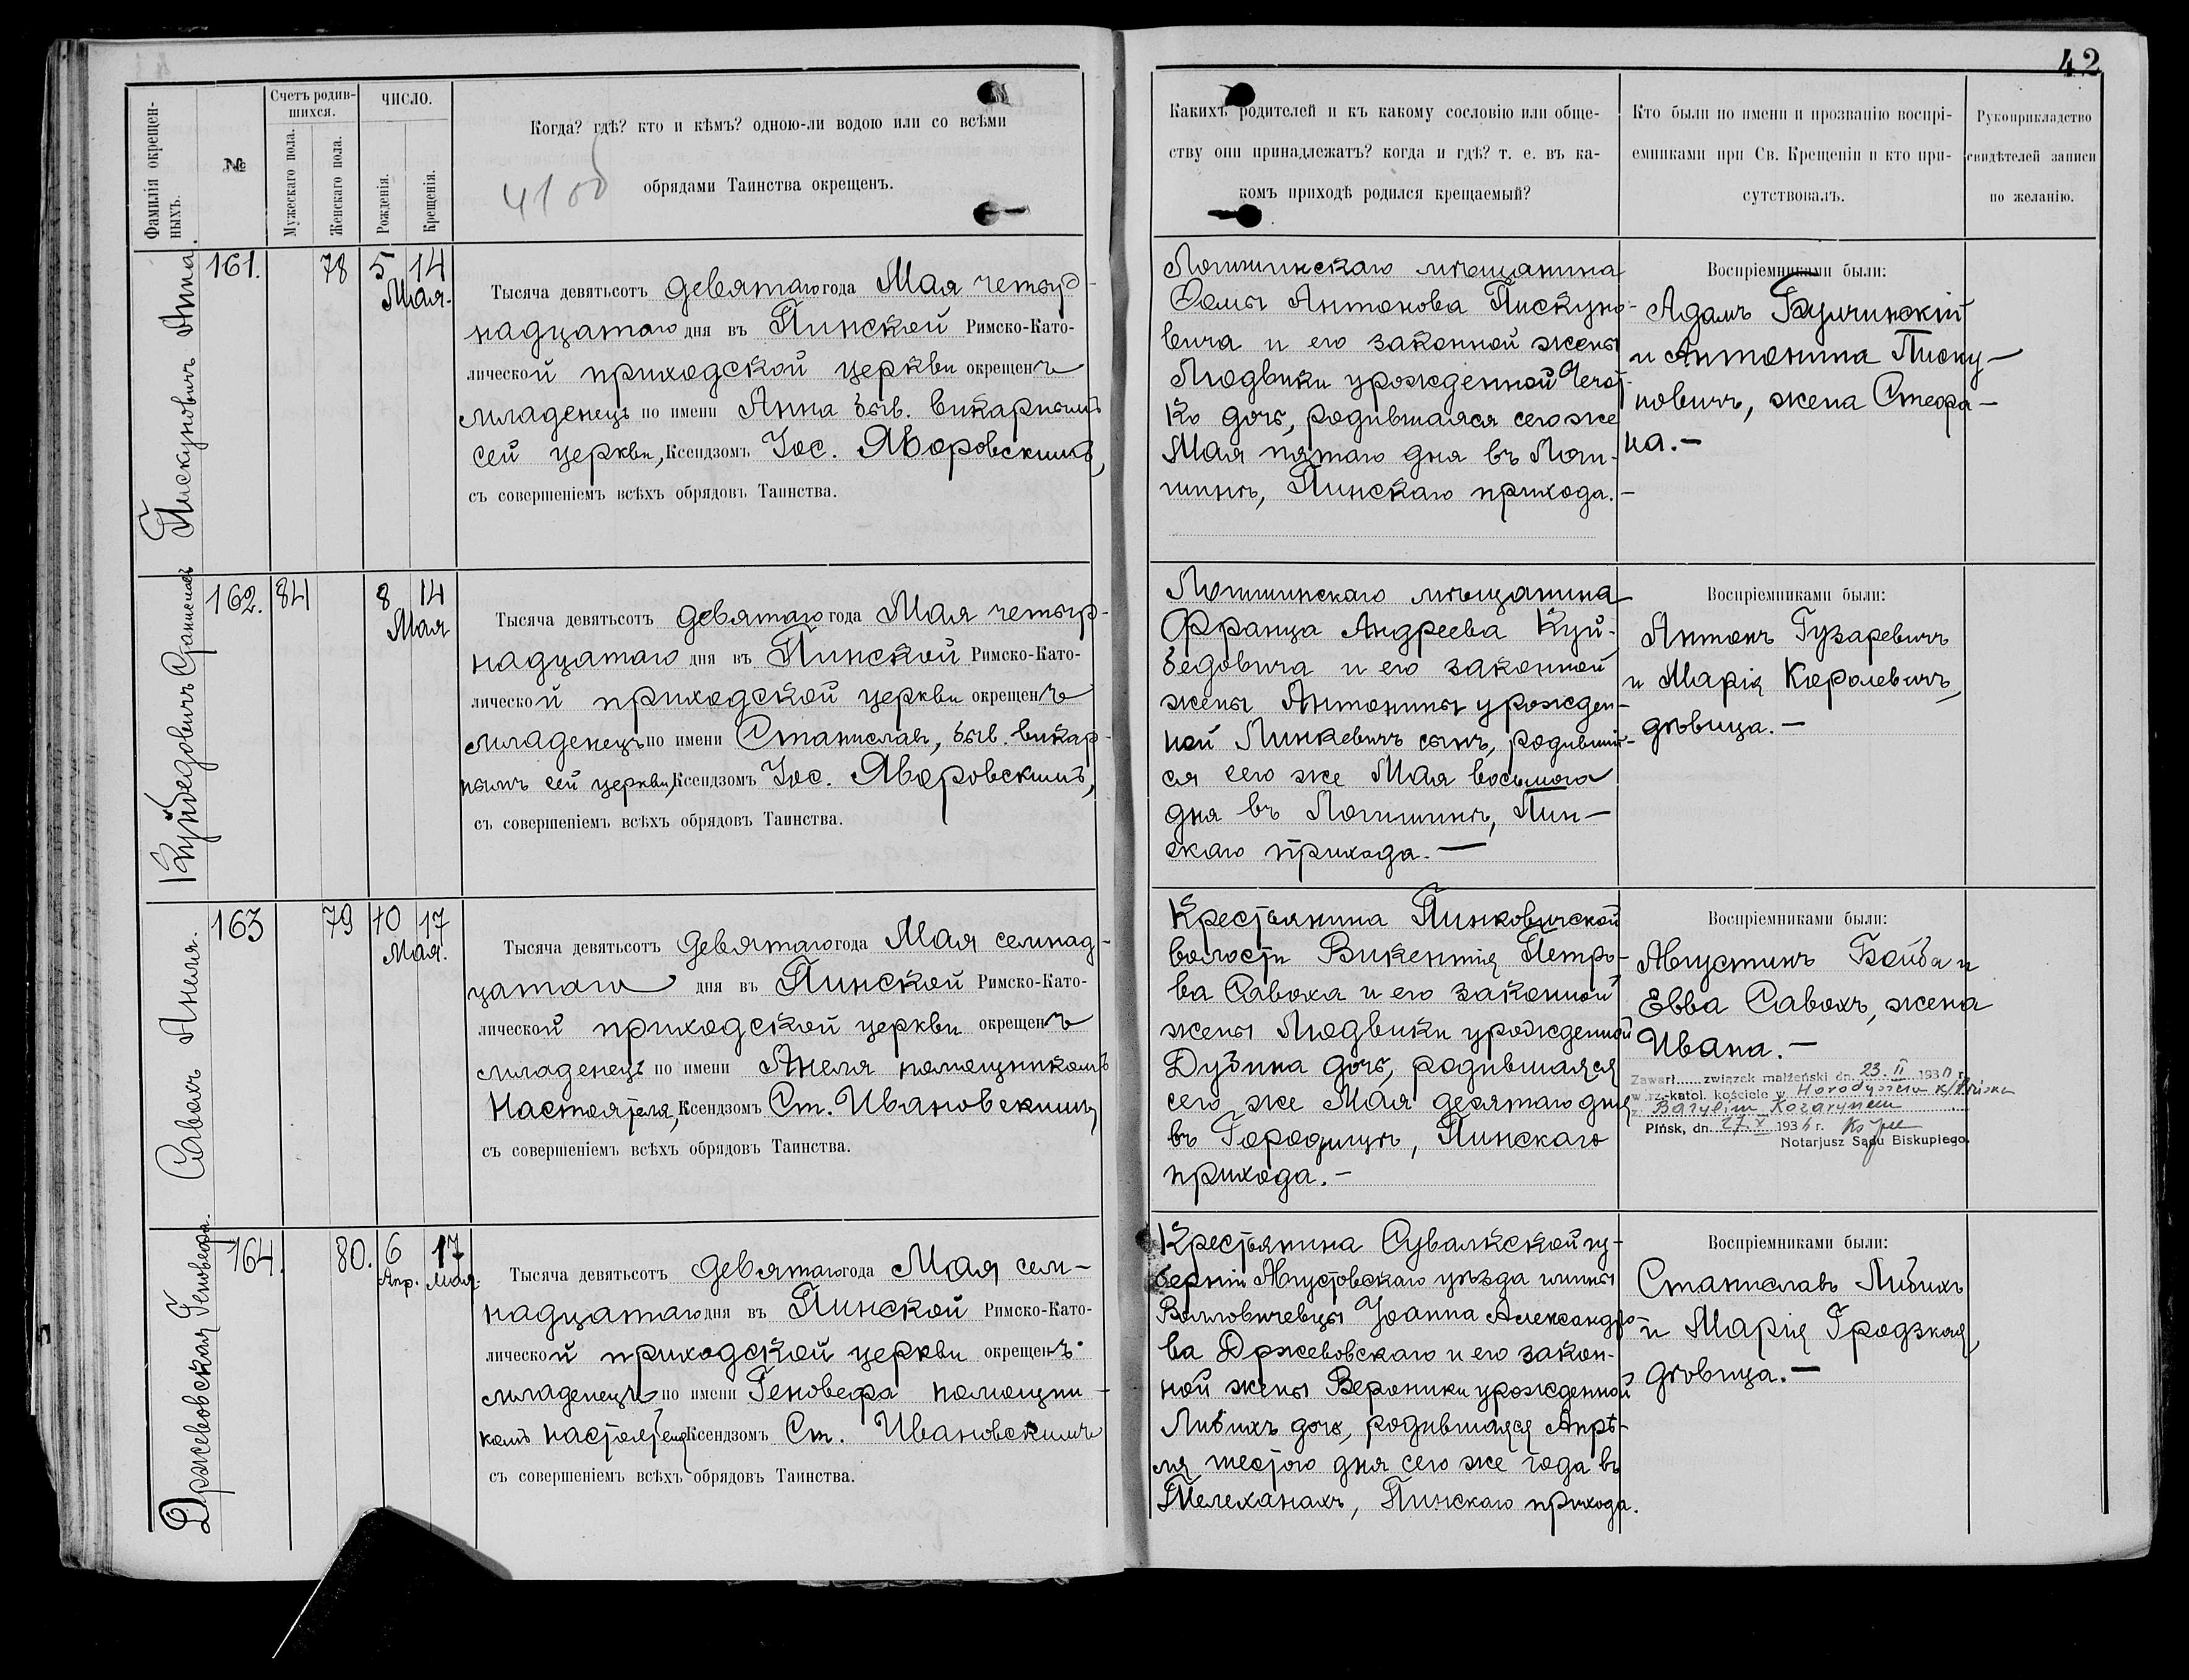 42
Фамилія окрещен-
ныхъ.
№
Счетъ родив-
шихся.
Мужескаго пола.
Женскаго пола.
ЧИСЛО.
Рожденія.
Крещенія.
Когда? гдѣ? кто и кѣмъ? одною-ли водою или со всѣми
обрядами Таинства окрещенъ.
4100
Какихъ родителей и къ какому сословію или обще-
ству они принадлежатъ? когда и гдѣ? т. е. въ ка-
комъ приходѣ родился крещаемый?
Кто были по имени и прозванію воспрі-
емниками при Св. Крещеніи и кто при-
сутствовалъ.
Рукоприкладство
свидѣтелей записи
по желанію.
Пискуновичъ Анна.
161.
78
5
14
Мая.
Тысяча девятьсотъ девятаго года Мая четыр-
надцатаго дня въ Пинской Римско-Като-
лической приходской церкви окрещенъ
младенецъ по имени Анна быв. викарнымъ
сей церкви, Ксендзомъ Іос. Яворовскимъ,
съ совершеніемъ всѣхъ обрядовъ Таинства.
Логишинскаго мѣщанина
Ѳомы Антонова Пискуно-
вича и его законной жены
Людвики урожденной Чечот-
ко дочь, родившаяся сего же
Мая пятаго дня въ Логи-
шинѣ, Пинскаго прихода.—
Воспріемниками были:
Адамъ
и Антонина Писку-
новичъ, жена Стефа-
на.—
Куйбедовичъ Станиславъ
162.
84
8
14
Мая
Тысяча девятьсотъ девятаго года Мая четыр-
надцатаго дня въ Пинской Римско-Като-
лической приходской церкви окрещенъ
младенецъ по имени Станиславъ, быв. викар-
нымъ сей церкви, Ксендзомъ Іос. Яворовскимъ,
съ совершеніемъ всѣхъ обрядовъ Таинства.
Логишинскаго мѣщанина
Франца Андреева Куй-
бедовича и его законной
жены Антонины урожден-
ной Линкевичъ сынъ, родивший-
ся сего же Мая восьмого
дня въ Логишинѣ, Пин-
скаго прихода.—
Воспріемниками были:
Антонъ Гузаревичъ
и Марія Королевичъ,
дѣвица.—
Савохъ Анеля.
163
79
10
17
Мая.
Тысяча девятьсотъ девятаго года Мая семнад-
цатаго дня въ Пинской Римско-Като-
лической приходской церкви окрещенъ
младенецъ по имени Анеля помощникомъ
Настоятеля, Ксендзомъ Ст. Ивановскимъ
съ совершеніемъ всѣхъ обрядовъ Таинства.
Крестьянина Пинковичской
волости Викентія Петро-
ва Савоха и его законной
жены Людвики урожденной
Дубина дочь, родившаяся
сего же Мая десятаго дня
въ Городищѣ, Пинскаго
прихода.—
Воспріемниками были:
Августинъ Бойба и
Евва Савохъ, жена
Ивана.—
Zawarł...... związek małżeński dn. 23. II 193 r.
w rz.-katol. kościele w Horodyszczu k/Pińska
z Bazylim Kozarynem
Pińsk, dn. 27. X 1936 r.
Notarjusz Sądu Biskupiego.
Држевовская Геновефа.
164.
80.
6
17
Апр.
Мая.
Тысяча девятьсотъ девятаго года Мая сем-
надцатаго дня въ Пинской Римско-Като-
лической приходской церкви окрещенъ
младенецъ по имени Геновефа помощни-
комъ настоятеля Ксендзомъ Ст. Ивановскимъ
съ совершеніемъ всѣхъ обрядовъ Таинства.
Крестьянина Сувалкской гу-
берніи Августовскаго уѣзда гмины
Волловичевцы Іоанна Александро-
ва Држевовскаго и его закон-
ной жены Вероники урожденной
Либихъ дочь, родившаяся Апрѣ-
ля шестого дня сего же года въ
Телеханахъ, Пинскаго прихода.
Воспріемниками были:
Станиславъ Либихъ
и Марія Гродзкая,
дѣвица.—